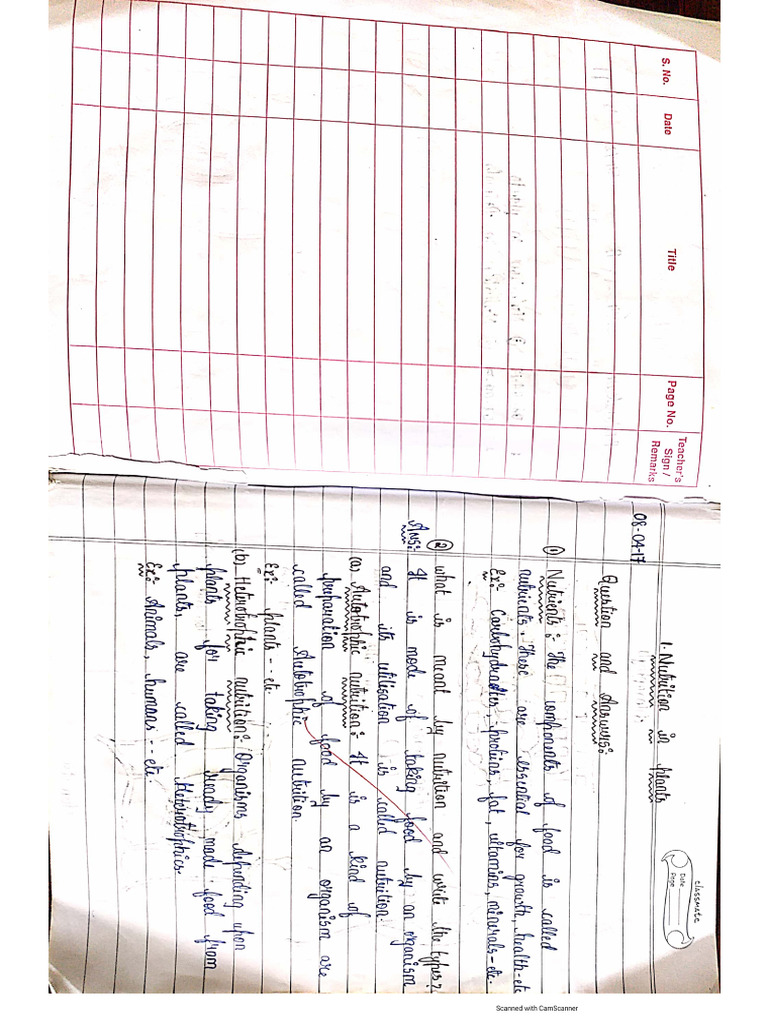 S. No.
Date
Title
Page No.
Teacher's
Sign /
Remarks
classmate
Date
Page
08-04-17
1. Nutrition in plants
Question and Answers:
① Nutrients: The components of food is called
nutrients. These are essential for growth, health-etc
Ex: Carbohydraties, protiens, fat, vitamins, minerals-etc.
② what is meant by nutrition and write the types?
Ans: It is mode of taking food by an organism
and its utilisation is called nutrition.
(a) Autotrophic nutrition: It is a kind of
preparation of food by an organism are
called Autotrophic nutrition.
Ex: plants -- etc.
(b) Heterotrophic nutrition: Organisms depending upon
plants for taking ready made food from
plants, are called Heterotrophics.
Ex: Animals, humans -- etc.
Scanned with CamScanner